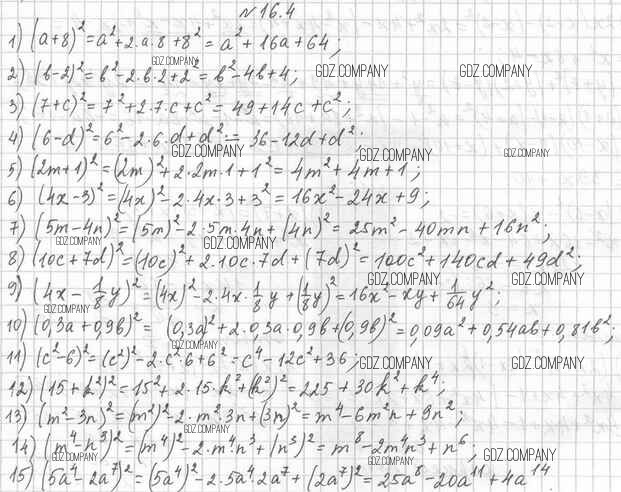 №16.4
1) (a+8)² = a² + 2·a·8 + 8² = a² + 16a + 64;
GDZ.COMPANY
2) (b-2)² = b² - 2·b·2 + 2² = b² - 4b + 4; GDZ.COMPANY GDZ.COMPANY
3) (7+c)² = 7² + 2·7·c + c² = 49 + 14c + c²;
4) (6-d)² = 6² - 2·6·d + d² = 36 - 12d + d²;
GDZ.COMPANY GDZ.COMPANY GDZ.COMPANY
5) (2m+1)² = (2m)² + 2·2m·1 + 1² = 4m² + 4m + 1;
6) (4x-3)² = (4x)² - 2·4x·3 + 3² = 16x² - 24x + 9;
7) (5m-4n)² = (5m)² - 2·5m·4n + (4n)² = 25m² - 40mn + 16n²;
GDZ.COMPANY GDZ.COMPANY
8) (10c+7d)² = (10c)² + 2·10c·7d + (7d)² = 100c² + 140cd + 49d²;
GDZ.COMPANY GDZ.COMPANY
9) (4x - 1/8 y)² = (4x)² - 2·4x·1/8 y + (1/8 y)² = 16x² - xy + 1/64 y²;
GDZ.COMPANY
10) (0,3a+0,9b)² = (0,3a)² + 2·0,3a·0,9b + (0,9b)² = 0,09a² + 0,54ab + 0,81b²;
GDZ.COMPANY
11) (c²-6)² = (c²)² - 2·c²·6 + 6² = c⁴ - 12c² + 36; GDZ.COMPANY GDZ.COMPANY
12) (15+k²)² = 15² + 2·15·k² + (k²)² = 225 + 30k² + k⁴;
13) (m²-3n)² = (m²)² - 2·m²·3n + (3n)² = m⁴ - 6m²n + 9n²;
GDZ.COMPANY
14) (m⁴-n³)² = (m⁴)² - 2·m⁴·n³ + (n³)² = m⁸ - 2m⁴n³ + n⁶,
GDZ.COMPANY GDZ.COMPANY GDZ.COMPANY
15) (5a⁴-2a⁷)² = (5a⁴)² - 2·5a⁴·2a⁷ + (2a⁷)² = 25a⁸ - 20a¹¹ + 4a¹⁴